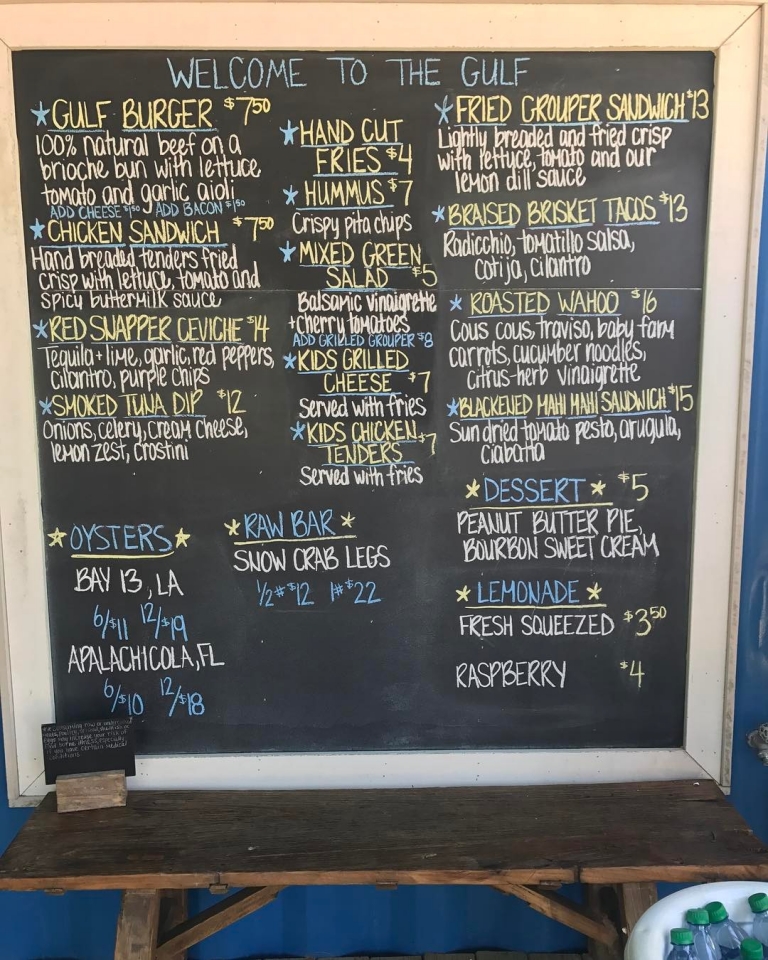 WELCOME TO THE GULF
*GULF BURGER $7.50
100% natural beef on a
brioche bun with lettuce
tomato and garlic aioli
ADD CHEESE $1.50 ADD BACON $1.50
*CHICKEN SANDWICH $7.50
Hand breaded tenders fried
crisp with lettuce, tomato and
spicy buttermilk sauce
*RED SNAPPER CEVICHE $14
Tequila + lime, garlic, red peppers,
cilantro, purple chips
*SMOKED TUNA DIP $12
Onions, celery, cream cheese,
lemon zest, crostini
*OYSTERS*
BAY 13, LA
6/$11 12/$19
APALACHICOLA, FL
6/$10 12/$18
*HAND CUT
FRIES $4
*HUMMUS $7
Crispy pita chips
*MIXED GREEN
SALAD $5
Balsamic vinaigrette
+cherry tomatoes
ADD GRILLED GROUPER $8
*KIDS GRILLED
CHEESE $7
Served with fries
*KIDS CHICKEN
TENDERS $7
Served with fries
*RAW BAR*
SNOW CRAB LEGS
1/2# $12 1# $22
*FRIED GROUPER SANDWICH $13
Lightly breaded and fried crisp
with lettuce, tomato and our
lemon dill sauce
*BRAISED BRISKET TACOS $13
Radicchio, tomatillo salsa,
cotija, cilantro
*ROASTED WAHOO $16
Cous cous, traviso, baby farm
carrots, cucumber noodles,
citrus-herb vinaigrette
*BLACKENED MAHI MAHI SANDWICH $15
Sun dried tomato pesto, arugula,
ciabatta
*DESSERT* $5
PEANUT BUTTER PIE,
BOURBON SWEET CREAM
*LEMONADE*
FRESH SQUEEZED $3.50
RASPBERRY $4